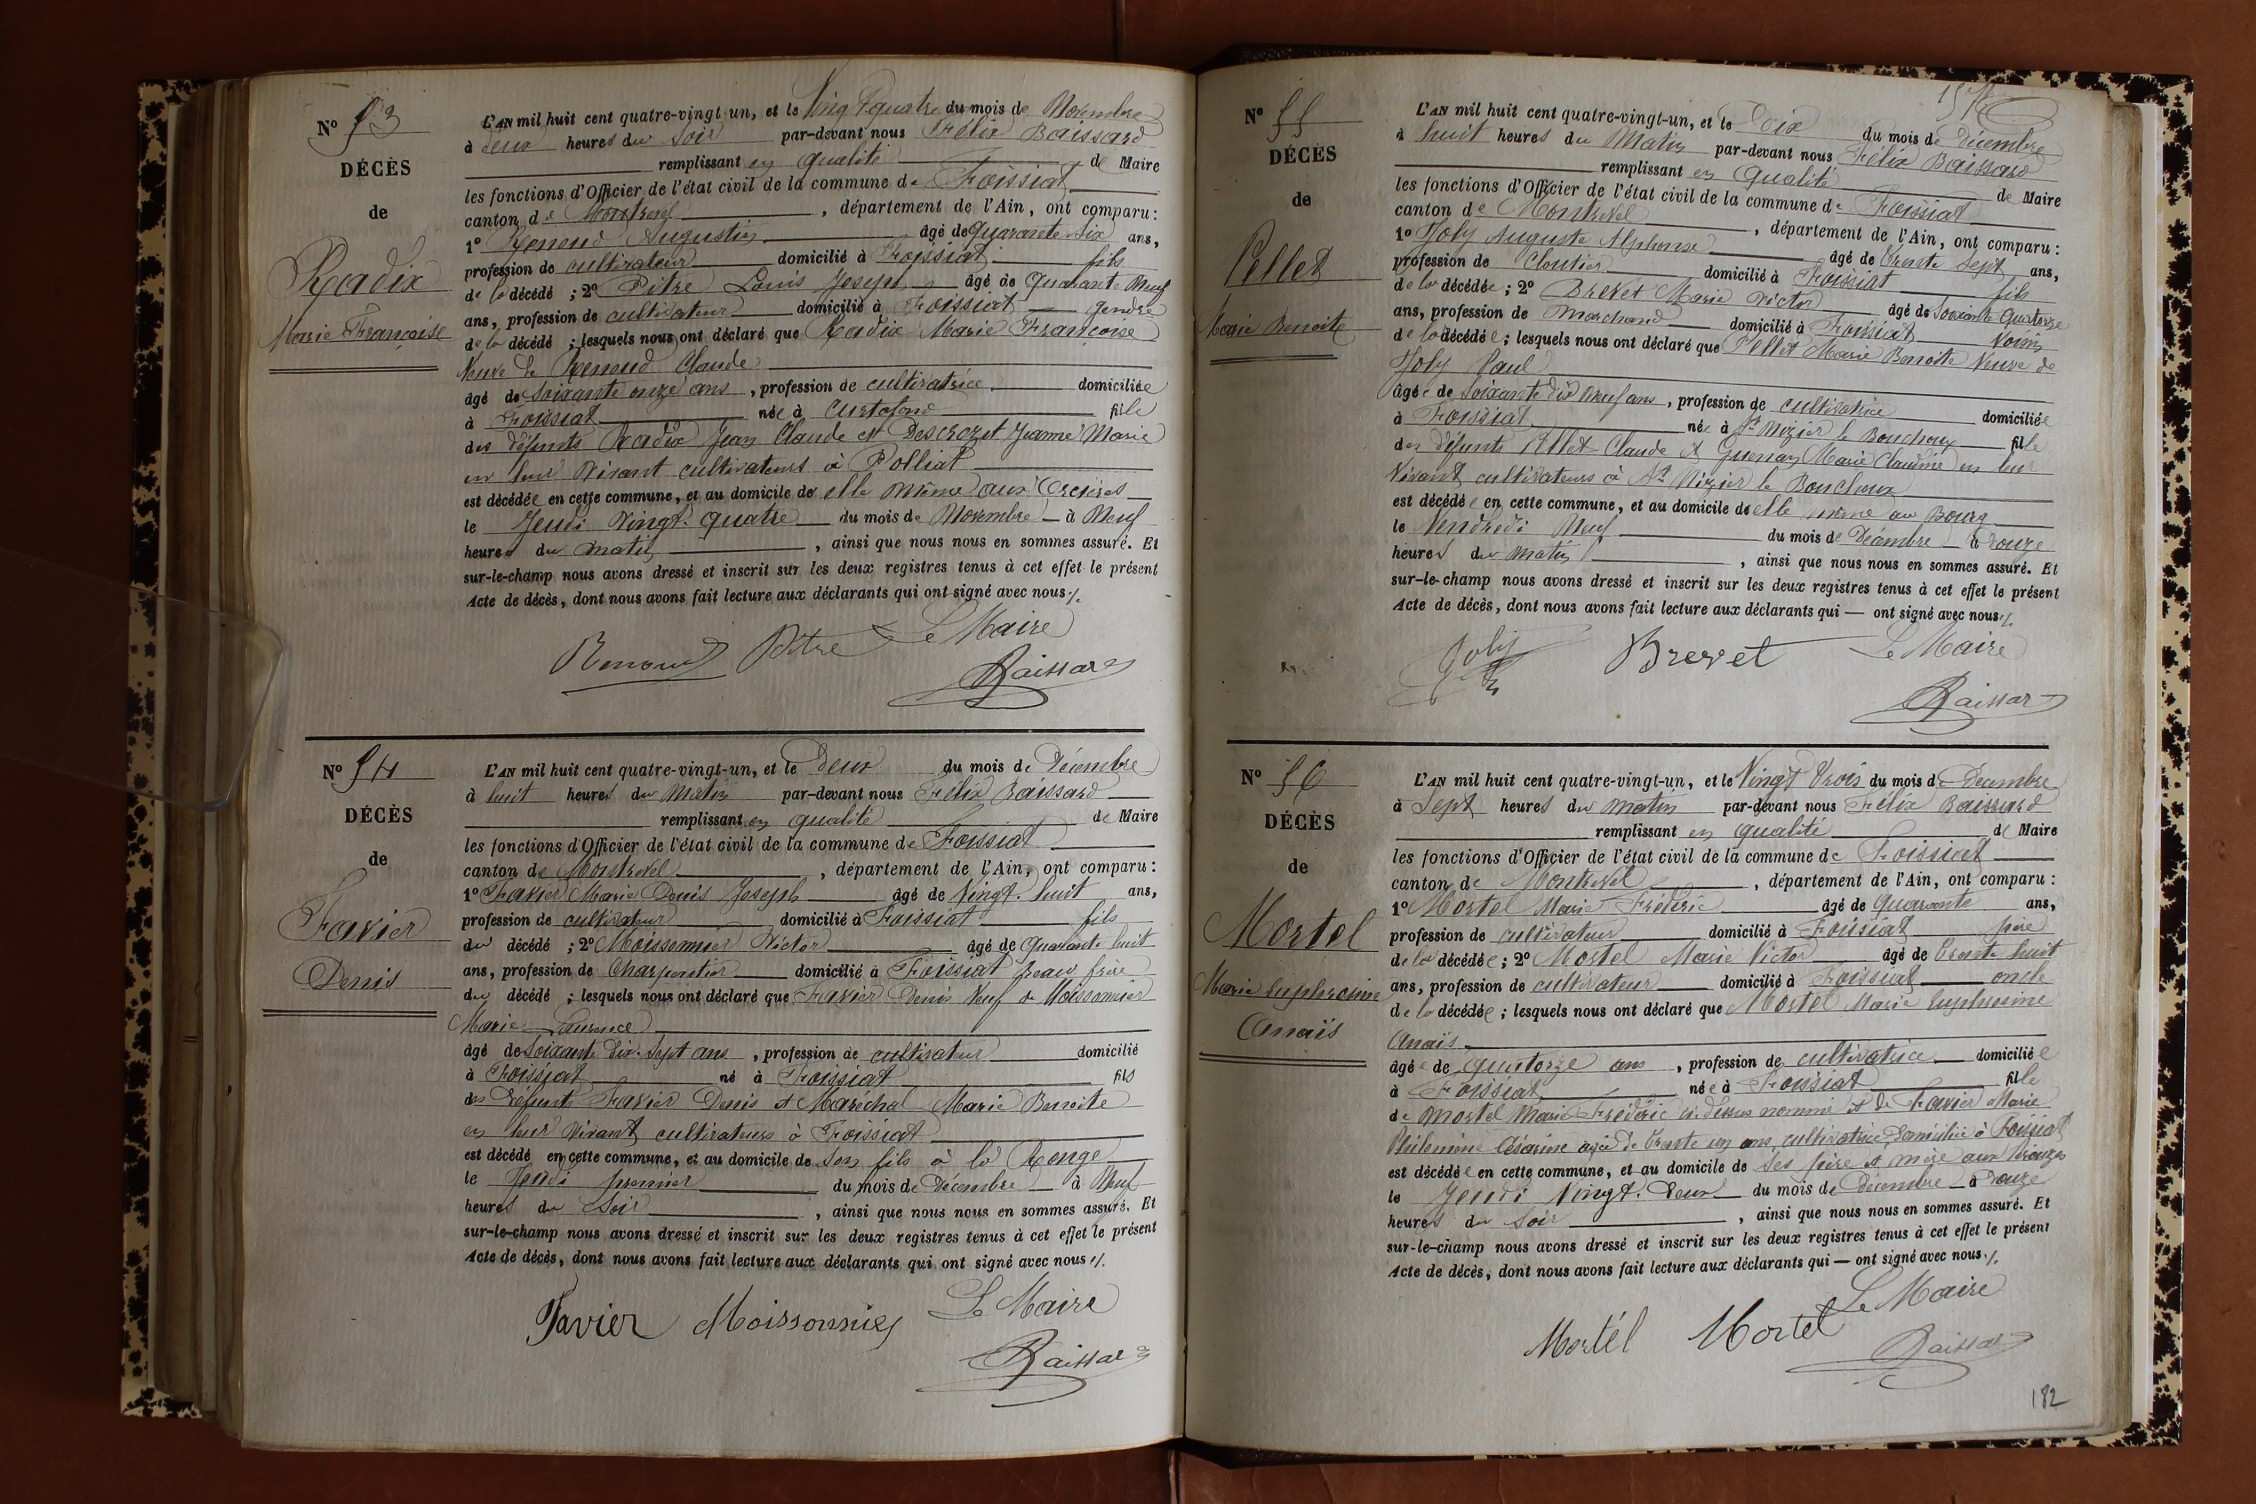 N° 53
DÉCÈS
de
Radix
Marie Françoise
L'AN mil huit cent quatre-vingt un, et le Vingt quatre du mois de Novembre
à deux heures du Soir par-devant nous Félix Baissard
remplissant en qualité de Maire
les fonctions d'Officier de l'état civil de la commune de Foissiat
canton de Montrevel, département de l'Ain, ont comparu :
1° Renoud Augustin âgé de quarante six ans,
profession de cultivateur domicilié à Foissiat fils
de la décédé ; 2° Pitre Louis Joseph âgé de quarante neuf
ans, profession de cultivateur domicilié à Foissiat gendre
de la décédé ; lesquels nous ont déclaré que Radix Marie Françoise
Veuve de Renoud Claude
âgé de Soixante onze ans, profession de cultivatrice domiciliée
à Foissiat née à Curtafond fille
des défunts Radix Jean Claude et Descrozet Jeanne Marie
en leur vivant cultivateurs à Polliat
est décédée en cette commune, et au domicile de elle même aux
le Jeudi Vingt-quatre du mois de Novembre à Neuf
heures du matin, ainsi que nous nous en sommes assuré. Et
sur-le-champ nous avons dressé et inscrit sur les deux registres tenus à cet effet le présent
Acte de décès, dont nous avons fait lecture aux déclarants qui ont signé avec nous ./.
Renoud Pitre Le Maire
Baissard
N° 54
DÉCÈS
de
Favier
Denis
L'AN mil huit cent quatre-vingt-un, et le deux du mois de Décembre
à huit heures du Matin par-devant nous Félix Baissard
remplissant en qualité de Maire
les fonctions d'Officier de l'état civil de la commune de Foissiat
canton de Montrevel, département de l'Ain, ont comparu :
1° Favier Marie Denis Joseph âgé de Vingt-huit ans,
profession de cultivateur domicilié à Foissiat fils
du décédé ; 2° Moissonnier Victor âgé de quarante huit
ans, profession de Charpentier domicilié à Foissiat beau frère
du décédé ; lesquels nous ont déclaré que Favier Denis Veuf de Moissonnier
Marie Laurence
âgé de Soixante Dix-Sept ans, profession de cultivateur domicilié
à Foissiat né à Foissiat fils
des défunts Favier Denis et Maréchal Marie Benoite
en leur vivant cultivateurs à Foissiat
est décédé en cette commune, et au domicile de son fils à la Ronge
le Jeudi premier du mois de Décembre à Neuf
heures du Soir, ainsi que nous nous en sommes assuré. Et
sur-le-champ nous avons dressé et inscrit sur les deux registres tenus à cet effet le présent
Acte de décès, dont nous avons fait lecture aux déclarants qui ont signé avec nous ./.
Favier Moissonnier Le Maire
Baissard
N° 55
DÉCÈS
de
Pellet
Marie Benoite
L'AN mil huit cent quatre-vingt-un, et le Dix du mois de Décembre
à huit heures du Matin par-devant nous Félix Baissard
remplissant en qualité de Maire
les fonctions d'Officier de l'état civil de la commune de Foissiat
canton de Montrevel, département de l'Ain, ont comparu :
1° Joly Auguste Alphonse âgé de trente sept ans,
profession de Cloutier domicilié à Foissiat fils
de la décédée ; 2° Brevet Marie Victor âgé de Soixante Quatorze
ans, profession de marchand domicilié à Foissiat Voisin
de la décédée ; lesquels nous ont déclaré que Pellet Marie Benoite Veuve de
Joly Paul
âgée de Soixante dix neuf ans, profession de cultivatrice domiciliée
à Foissiat née à St Nizier le Bouchoux fille
des défunts Pellet Claude et Guenay Marie Claudine en leur
vivant cultivateurs à St Nizier le Bouchoux
est décédée en cette commune, et au domicile de elle même au Bourg
le Vendredi Neuf du mois de Décembre à Douze
heures du matin, ainsi que nous nous en sommes assuré. Et
sur-le-champ nous avons dressé et inscrit sur les deux registres tenus à cet effet le présent
Acte de décès, dont nous avons fait lecture aux déclarants qui — ont signé avec nous ./.
Joly Brevet Le Maire
Baissard
N° 56
DÉCÈS
de
Mortel
Marie Euphrosine
Anaïs
L'AN mil huit cent quatre-vingt-un, et le Vingt trois du mois de Décembre
à Sept heures du matin par-devant nous Félix Baissard
remplissant en qualité de Maire
les fonctions d'Officier de l'état civil de la commune de Foissiat
canton de Montrevel, département de l'Ain, ont comparu :
1° Mortel Marie Frédéric âgé de quarante ans,
profession de cultivateur domicilié à Foissiat père
de la décédée ; 2° Mortel Marie Victor âgé de trente huit
ans, profession de cultivateur domicilié à Foissiat oncle
de la décédée ; lesquels nous ont déclaré que Mortel Marie Euphrosine
Anaïs
âgée de quatorze ans, profession de cultivatrice domiciliée
à Foissiat née à Foissiat fille
de Mortel Marie Frédéric ci-dessus nommé et de Favier Marie
Philomine Césarine agée de trente un ans, cultivatrice domiciliée à Foissiat
est décédée en cette commune, et au domicile de ses père et mère aux
le Jeudi Vingt-Deux du mois de Décembre à Douze
heures du Soir, ainsi que nous nous en sommes assuré. Et
sur-le-champ nous avons dressé et inscrit sur les deux registres tenus à cet effet le présent
Acte de décès, dont nous avons fait lecture aux déclarants qui — ont signé avec nous ./.
Mortél Mortel Le Maire
Baissard
182